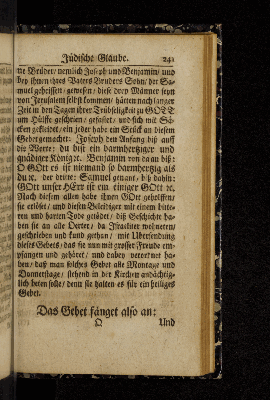 Jüdische Glaube. 241
ne Brüder/ nemlich Joseph und Benjamin/ und
bey ihnen ihres Vaters Bruders Sohn/ der Sa-
muel geheissen/ gewesen/ diese drey Männer seyn
von Jerusalem selbst kommen/ hätten nach langer
Zeit in den Tagen ihrer Trübseligkeit zu GOTT
um Hülffe geschrien/ gefastet/ und sich mit Sä-
cken gekleidet/ ein jeder habe ein Stück an diesem
Gebet gemachet: Joseph den Anfang biß auff
die Worte: du bist ein barmhertziger und
gnädiger König ꝛc. Benjamin von da an biß:
O GOtt es ist niemand so barmhertzig als
du ꝛc. der dritte/ Samuel genant/ biß dahin:
GOtt unser HErr ist ein einiger GOtt ꝛc.
Nach diesem allen habe ihnen GOtt geholffen/
sie erlöst/ und diesen Beleidiger mit einem bitte-
ren und harten Tode getödet/ diß Geschichte ha-
ben sie an alle Oerter/ da Israeliter wohneten/
geschrieben und kund gethan/ mit Ubersendung
dieses Gebets/ das sie nun mit grosser Freude em-
pfangen und gehöret/ und dabey verordnet ha-
ben/ daß man solches Gebet alle Montage und
Donnerstage/ stehend in der Kirchen andächtig-
lich beten solle/ denn sie halten es für ein heiliges
Gebet.
Das Gebet fänget also an:
Q Und